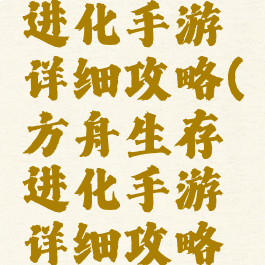 进化手游
详细攻略(
方舟生存
进化手游
详细攻略